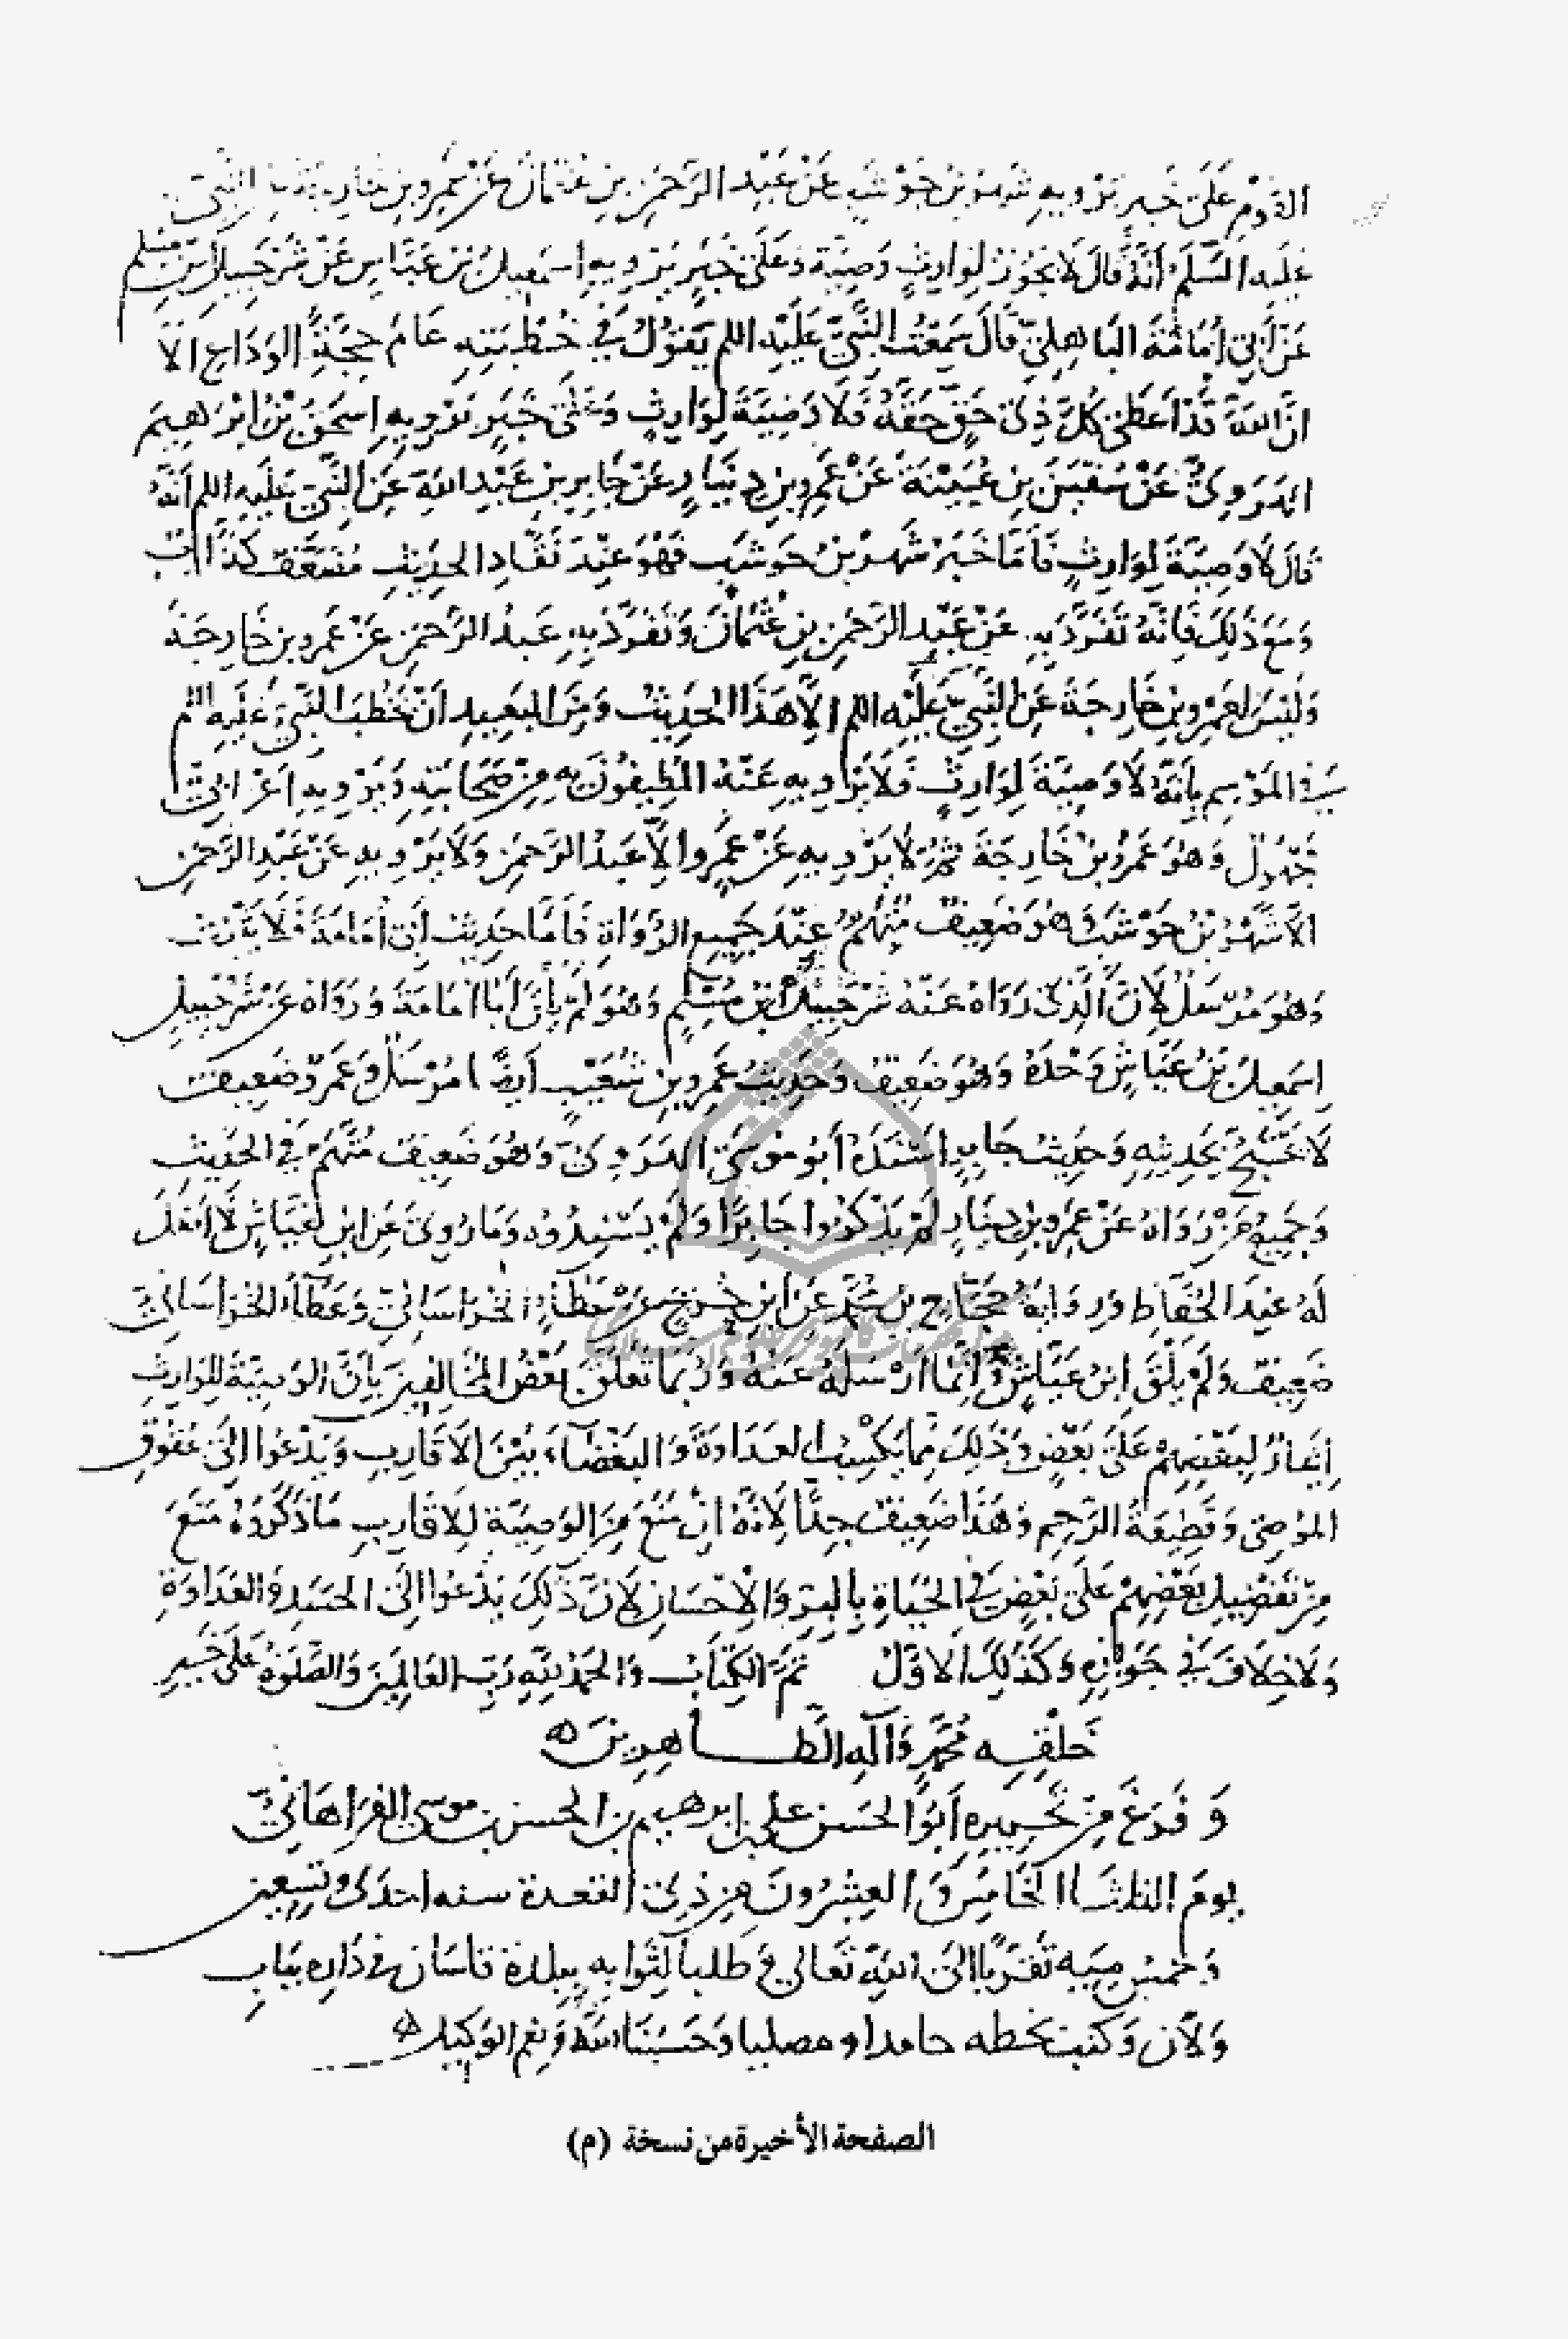 القوم على خبر يرويه شهر بن حوشب عن عبد الرحمن بن عثمان عن عمرو بن خارجة النبي
عليه السلم أنه قال لا يجوز لوارث وصية وعلى خبر يرويه اسمعيل بن عباس عن شرحبيل ابن مسلم
عن أبي أمامة الباهلي قال سمعت النبي عليه اللم يقول في خطبته عام حجة الوداع الا
ان الله قد أعطى كل ذي حق حقه فلا وصية لوارث وعلى خبر يرويه اسحق بن ابرهيم
الهروي عن سفين بن عيينة عن عمرو بن دينار عن جابر بن عبد الله عن النبي عليه اللم أنه
قال لا وصية لوارث فأما خبر شهر بن حوشب فهو عند نقاد الحديث مضعف كذاب
ومع ذلك فإنه تفرد به عن عبد الرحمن بن عثمان وتفرد به عبد الرحمن عن عمرو بن خارجة
وليس لعمرو بن خارجة عن النبي عليه اللم الا هذا الحديث ومن البعيد ان يخطب النبي عليه اللم
في الموسم بأنه لا وصية لوارث فلا يرويه عنه المطيفون به من صحابته ويرويه اعرابي
مجهول وهو عمرو بن خارجة ثم لا يرويه عن عمرو الا عبد الرحمن ولا يرويه عن عبد الرحمن
الا شهر بن حوشب وهو ضعيف متهم عند جميع الرواة فأما حديث أبي أمامة فلا يثبت
وهو مرسل لان الذي رواه عنه شرحبيل ابن مسلم وهو لم يلق أبا امامة ورواه عن شرحبيل
اسمعيل بن عياش وحده وهو ضعيف وحديث عمرو بن شعيب أيضا مرسل وعمرو ضعيف
لا يحتج بحديثه وحديث جابر اسنده أبو موسى الهروي وهو ضعيف متهم في الحديث
وجميع من رواه عن عمرو بن دينار لم يذكروا جابرا ولم يسندوه وما روي عن ابن لعباش لا أصل
له عند الحفاظ ورواية حجاج بن محمد عن ابن جريج عن عطاء الخراساني وعطاء الخراساني
ضعيف ولم يلق ابن عباس وإنما ارسله عنه وربما تعلق بعض المخالفين بأن الوصية للوارث
إيثار لبعضهم على بعض وذلك مما يكسب العداوة والبغضاء بين الاقارب ويدعوا الى عقوق
الموصي وقطيعة الرحم وهذا ضعيف جدا لأنه ان منع من الوصية للاقارب ما ذكروه منع
من تفضيل بعضهم على بعض في الحياة بالبر والاحسان لان ذلك يدعوا الى الحسد والعداوة
ولا خلاف في جوازه وكذلك الاول تم الكتاب والحمد لله رب العالمين والصلوة على خير
خلقه محمد وآله الطاهرين
وفرغ من تحريره أبو الحسن علي بن ابرهيم بن الحسن بن موسى الفراهاني
يوم الثلثا الخامس والعشرون من ذي القعدة سنه احدى وتسعين
وخمس مية تقربا الى الله تعالى وطلبا لثوابه ببلدة قاسان في داره بباب
ولان وكتب بخطه حامدا ومصليا وحسبنا الله ونعم الوكيل
الصفحة الأخيرة من نسخة (م)